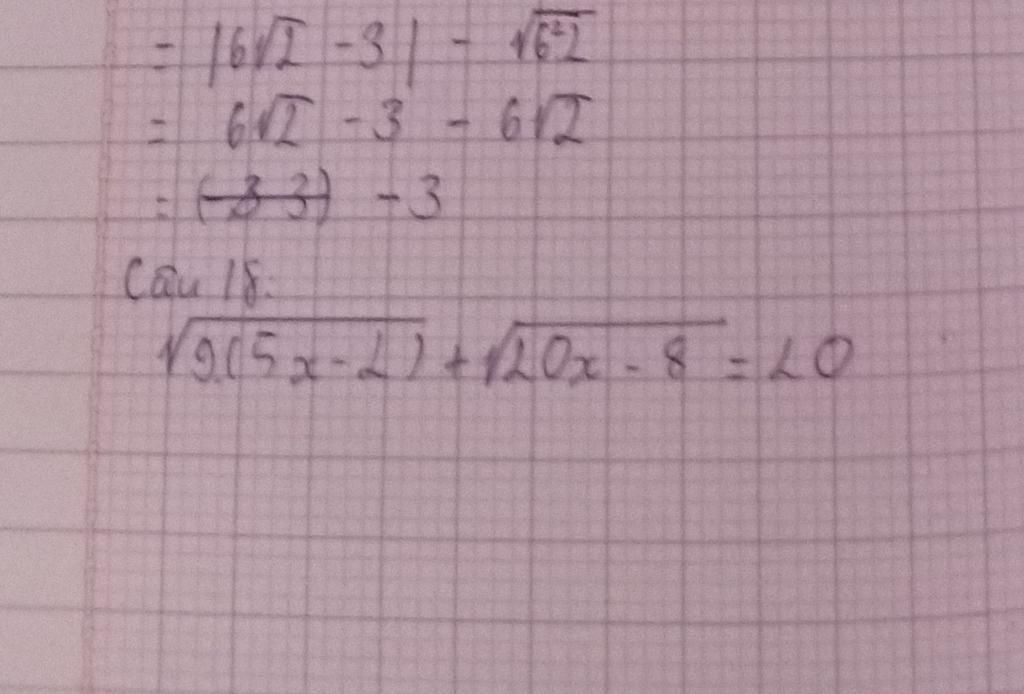 = |6√2 - 3| - √6²2
= 6√2 - 3 - 6√2
= (-3 3) - 3
Câu 18:
√9.(5x-2) + √20x - 8 = 20